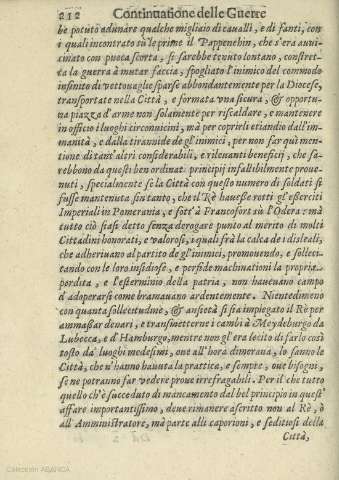 212 Continuatione delle Guerre
be potuto adunare qualche migliaio di caualli, e di fanti, con
i quali incontrato su'l prime il Pappenehin, che s'era auui-
cinato con puoca scorta, si sarebbe tenuto lontano, constret-
ta la guerra à mutar faccia, spogliato l'inimico del commodo
infinito di vettouaglie sparse abbondantemente per la Diocese,
transportate nella Città, e formata vna sicura, & opportu-
na piazza d'arme non solamente per riscaldare, e mantenere
in officio i luoghi circonuicini, mà per coprirli etiandio dall'im-
manità, e dalla tirannide de gl'inimici, per non far quì men-
tione di tant'altri considerabili, e rileuanti beneficij, che sa-
rebbono da questi ben ordinati principij infallibilmente proue-
nuti, specialmente se la Città con questo numero di soldati si
fusse mantenuta sin tanto, che il Rè hauesse rotti gl'eserciti
Imperiali in Pomerania, e sott'à Francofort sù l'Odera: mà
tutto ciò siasi detto senza derogare punto al merito di molti
Cittadini honorati, e valorosi, i quali frà la calca de i disleali,
che adheriuano al partito de gl'inimici, promouendo, e sollec-
tando con le loro insidiose, e perfide machinationi la propria
perdita, e l'esterminio della patria, non haueuano campo
d'adoperarsi come bramauano ardentemente. Nientedimeno
con quanta sollecitudine, & ansietà si sia impiegato il Rè per
ammassar denari, e transmetterne i cambi à Meydeburgo da
Lubecca, e d'Hamburgo, mentre non gl'era lecito di farlo così
tosto da' luoghi medesimi, oue all'hora dimoraua, lo sanno le
Città, che n'hanno hauuta la prattica, e sempre, oue bisogni,
se ne potranno far vedere proue irrefragabili. Per il che tutto
quello ch'è succeduto di mancamento dal bel principio in quest'
affare importantissimo, deue rimanere ascritto non al Rè, ò
all'Amministratore, mà parte alli caporioni, e seditiosi della
Città,
Colección ABANCA